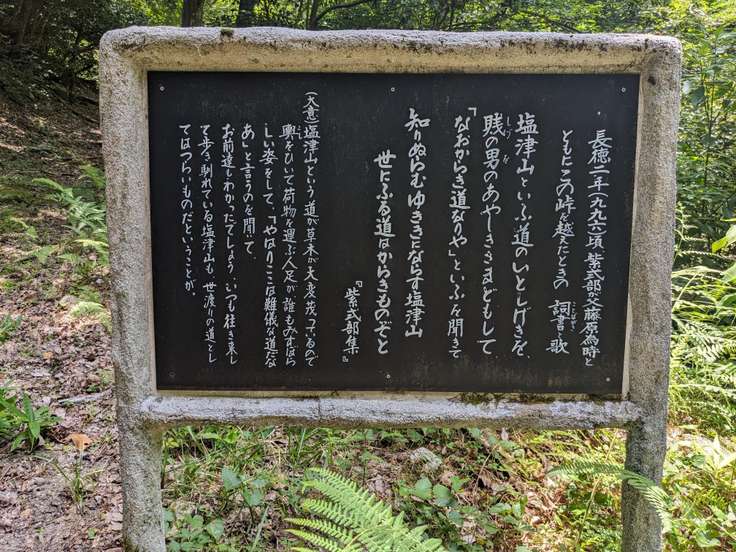 長徳二年(九九六)頃 紫式部が父藤原為時と
ともにこの峠を越えたときの 詞書・歌
塩津山といふ道のいとしげきを
賎の男のあやしきさまどもして
「なおからき道なりや」といふを聞きて
知りぬらむゆききにならす塩津山
世にふる道はからきものぞと
『紫式部集』
(大意)塩津山という道が草木が大変茂っているので
輿をひいて荷物を運ぶ人足が、誰もみすぼら
しい姿をして、「やはりここは難儀な道だな
あ」と言うのを聞いて、
お前達もわかったでしょう、いつも往き来し
て歩き馴れている塩津山も、世渡りの道とし
てはつらいものだということが。